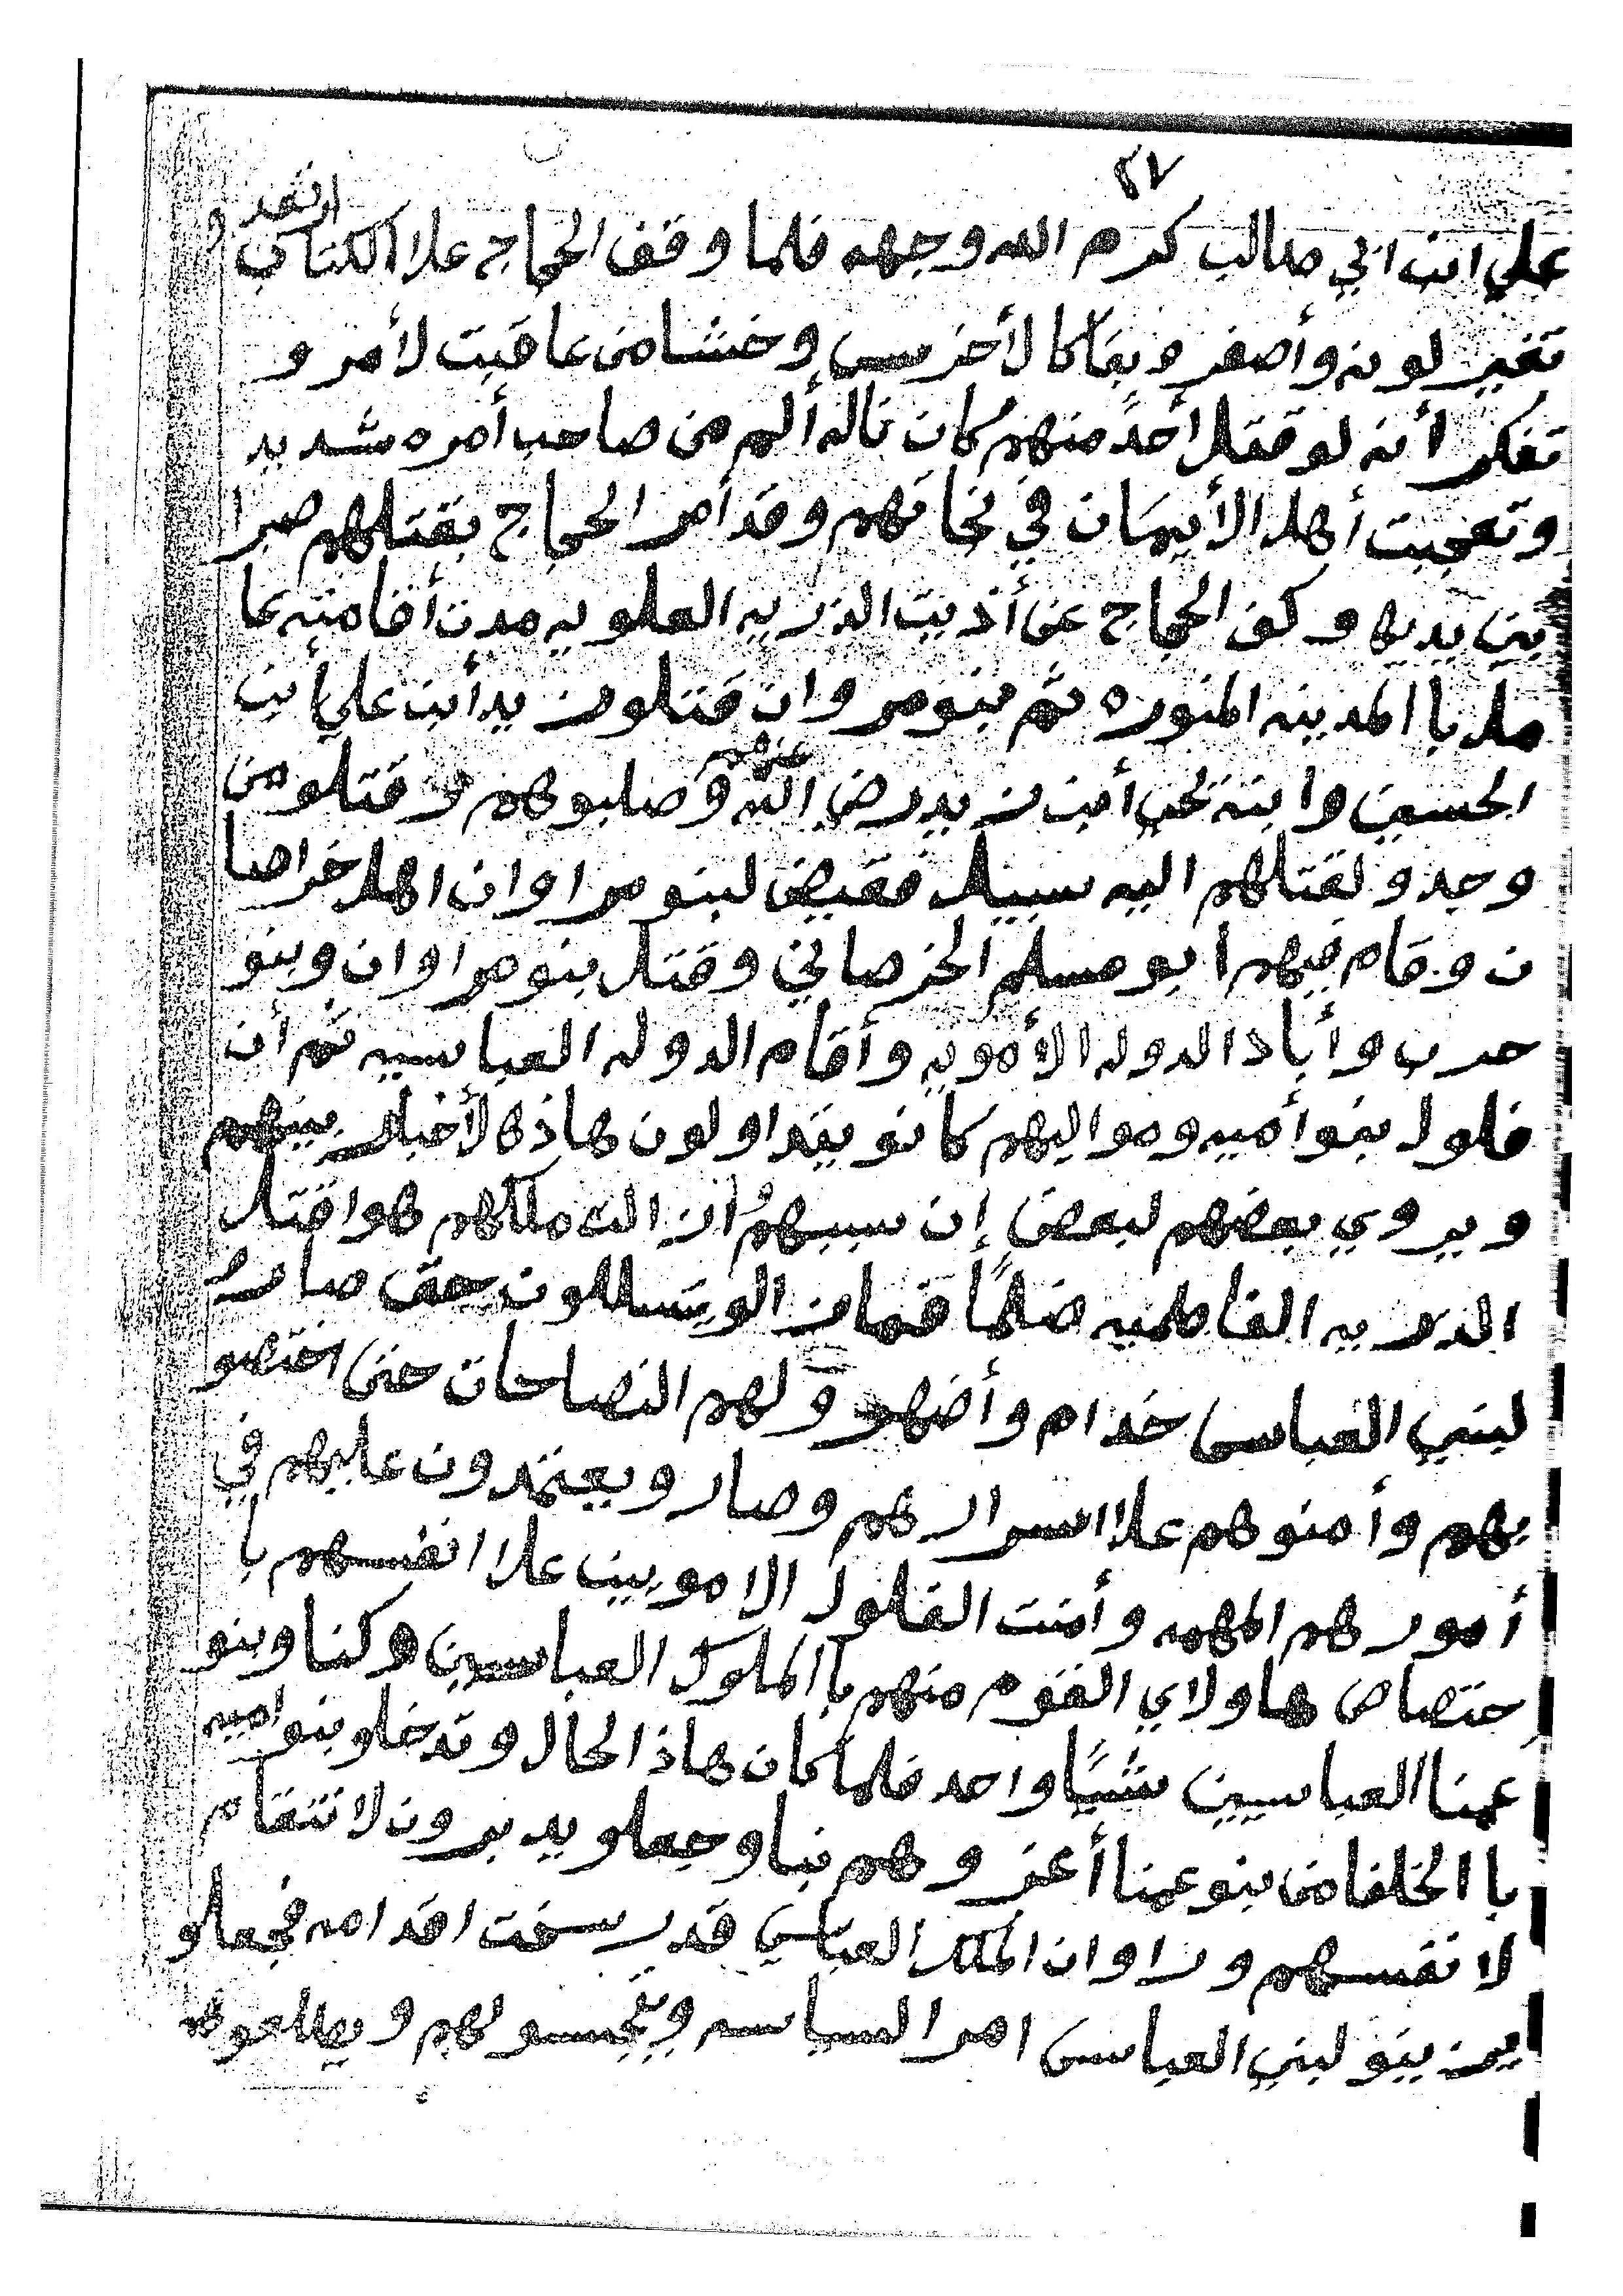 ٢٧
علي ابن ابي طالب كرم الله وجهه فلما وقف الحجاج علا الكتاب ارتعد و
تغير لونه وأصفر وبقا كالأخرس وخشا من عاقبت لأمر و
تفكر أنه لو قتل أحدً منهم كان ناله ألم من صاحب أمره شديد
وتعجبت أهل الأيمان في نجاتهم وقد أمر الحجاج بقتلهم صبرا
بين يديه وكف الحجاج عن أذيت الذريه العلويه مدت أقامته عا
مل با المدينه المنوره ثم بنو مروان قتلون يد أبن علي أبن
الحسين وابنه يحي أبن زيد رضي الله عنهم وصلبوهم وقتلو من
وجدو لقتلهم اليه سبيل فقيض لبنو مراوان اهل خراصا
ن وقام فيهم ابو مسلم الخرصاني وقتل بنو مراوان وبنو
حرب وأباد الدوله الأمويه وأقام الدوله العباسيه ثم أن
فلول بنو أميه ومواليهم كانو يتداولون هاذه لأخبار بينهم
ويروي بعضهم لبعض إن سببهم ازالت ملكهم هوا قتل
الذريه الفاطميه ضلمًا فمازالو يتسللون حتى صارو
لبني العباس خدام وأضهرو لهم النصاحات حتى اختصو
بهم وأمنوهم علا اسرارهم وصارو يعتمدون عليهم في
أمورهم المهمه وأمنت الفلول الامويين علا انفسهم با
ختصاص هاولاي القوم منهم با الملوك العباسيين وكنا وبنو
عمنا العباسيين شيًا واحد فلما كان هاذ الحال وتدخلو بنو اميه
با الخلفا من بنو عمنا أغروهم بنا وجعلو يدبرون لانتقام
لانفسهم وراو ان الملك العباسي قد رسخت اقدامه فجعلو
يزينو لبني العباس امر السياسه ويتجسسو لهم ويطلعوهم